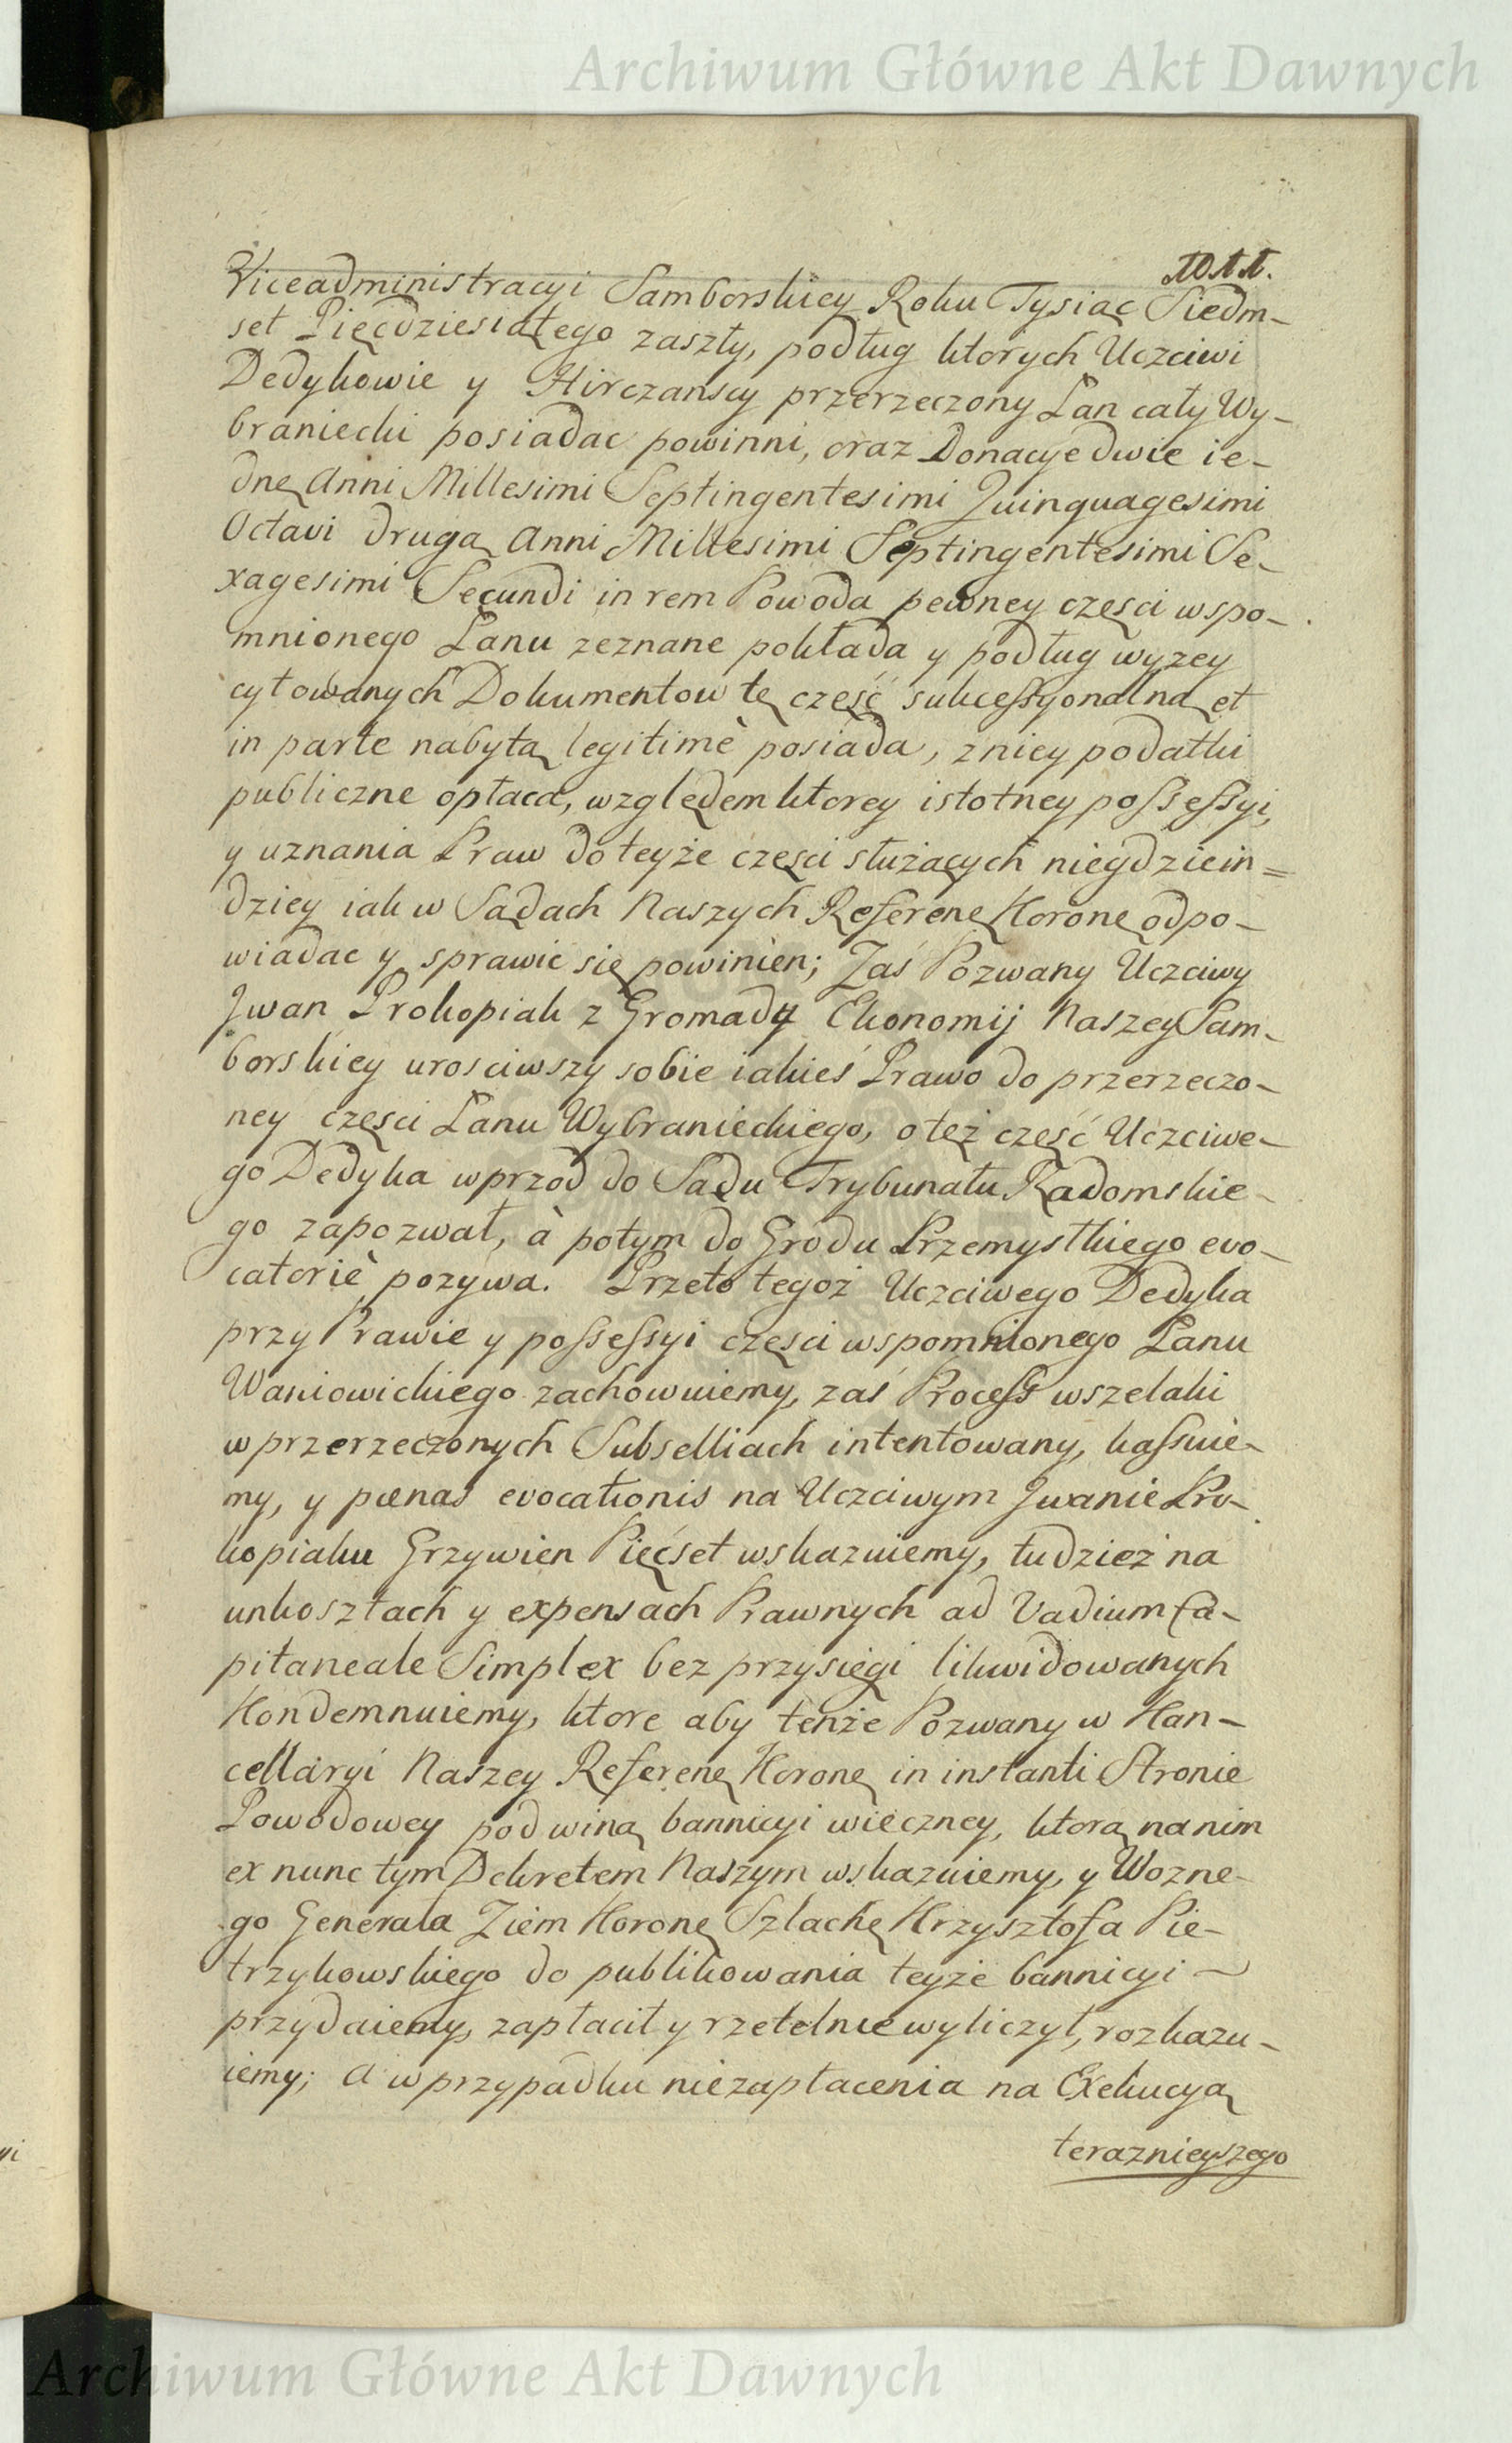 Archiwum Główne Akt Dawnych
Viceadministracyi Samborskiey Roku Tysiąc Siedm-
set Pięćdziesiątego zaszły, podług ktorych Uczciwi
Dedykowie y Hirczanscy przerzeczony Łan cały Wy-
braniecki posiadac powinni, oraz Donacye dwie ie-
dnę Anni Millesimi Septingentesimi Quinquagesimi
Octavi drugą Anni Millesimi Septingentesimi Se-
xagesimi Secundi in rem Powoda pewney częsci wspo-
mnionego Łanu zeznane pokłada y podług wyzey
cytowanych Dokumentow tę część sukcessyonalną et
in parte nabytą legitimè posiada, z niey podatki
publiczne opłaca, względem ktorey istotney possessyi,
y uznania Praw do teyże częsci służących niegdziein=
dziey iak w Sądach Naszych Referenę Koronę odpo-
wiadac y sprawic się powinien; Zaś Pozwany Uczciwy
Jwan Prokopiak z Gromady Ekonomij Naszey Sam-
borskiey urosciwszy sobie iakieś Prawo do przerzeczo-
ney częsci Łanu Wybranieckiego, o też część Uczciwe-
go Dedyka wprzod do Sądu Trybunału Radomskie-
go zapozwał, à potym do Grodu Przemyslkiego evo-
catoriè pozywa. Przeto tegoż Uczciwego Dedyka
przy Prawie y possessyi częsci wspomnionego Łanu
Waniowickiego zachowuiemy, zaś Process wszelaki
w przerzeczonych Subselliach intentowany, kassuie-
my, y pœnas evocationis na Uczciwym Jwanie Pro-
kopiaku Grzywien Pięćset wskazuiemy, tudzież na
unkosztach y expensach Prawnych ad Vadium Ca-
pitaneale Simplex bez przysięgi likwidowanych
Kondemnuiemy, ktore aby tenże Pozwany w Kan-
cellaryi Naszey Referenę Koronę in instanti Stronie
Powodowey pod winą bannicyi wieczney, ktorą na nim
ex nunc tym Dekretem Naszym wskazuiemy, y Wozne-
go Generała Ziem Koronę Szlachę Krzysztofa Pie-
trzykowskiego do publikowania teyże bannicyi
przydaiemy, zapłacił y rzetelnie wyliczył, rozkazu-
iemy; a w przypadku niezapłacenia na Exekucyą
teraznieyszego
Archiwum Główne Akt Dawnych